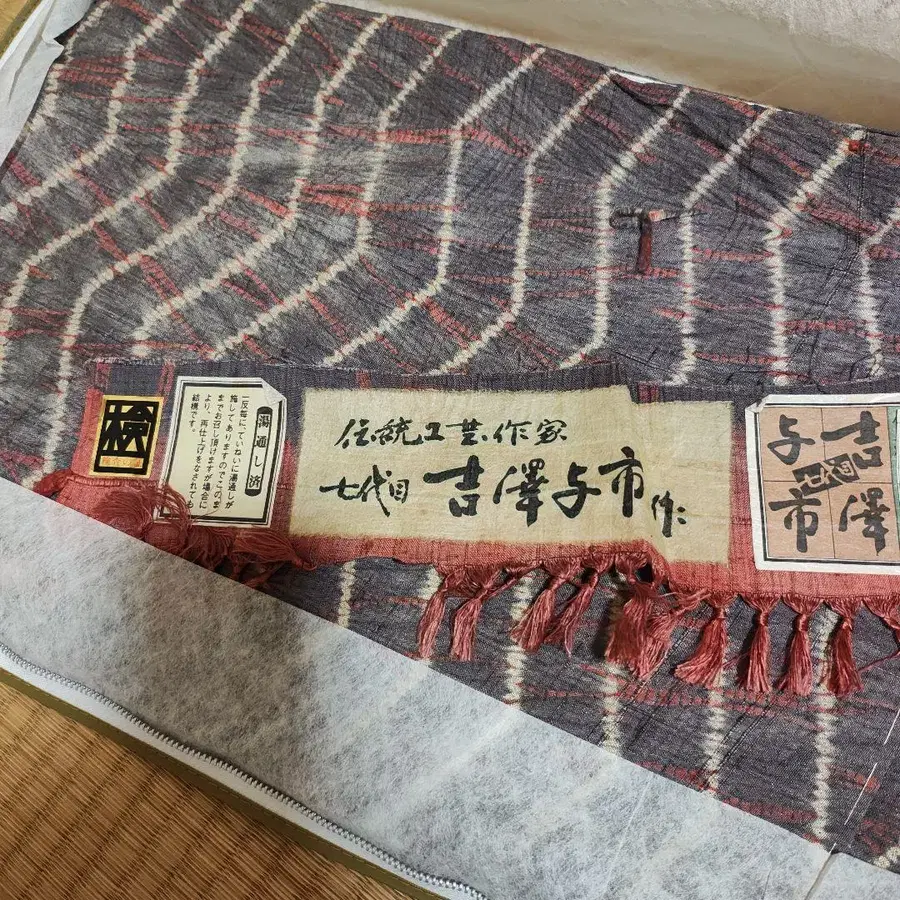 検
湯通し済
一反毎に、ていねいに湯通しが
施してありますのでこのま
までお召し頂けますが場合に
より、再仕上げをなされても
結構です。
伝統工芸作家
七代目 吉澤与市 作
吉澤
与市